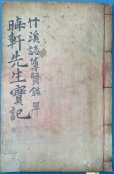 竹溪誌尊賢錄單
晦軒先生實記